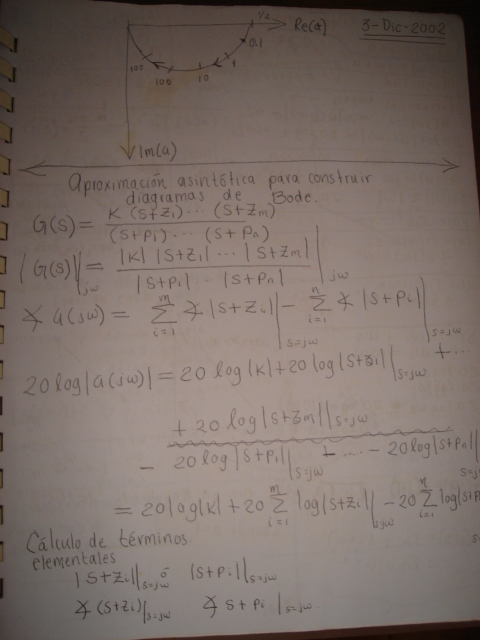 1/2 Re(α) 3-Dic-2002
0.1
1
10
100
100
Im(α)
Aproximación asintótica para construir
diagramas de Bode.
G(s) = K (s+z₁)··· (s+zₘ) / (s+p₁) ··· (s+pₙ)
|G(s)||jω = |K| |s+z₁| ··· |s+zₘ| / |s+p₁| ·· |s+pₙ| |jω
∡ G(jω) = Σ(i=1)^m ∡ |s+zᵢ||s=jω − Σ(i=1)^n ∡ |s+pᵢ||s=jω
20 log|G(jω)| = 20 log|K| + 20 log|s+z₁||s=jω + ...
+ 20 log|s+zₘ||s=jω
− 20 log|s+p₁||s=jω + .... − 20 log|s+pₙ||s=jω
= 20 log|K| + 20 Σ(i=1)^m log|s+zᵢ||s=jω − 20 Σ(i=1)^n log|s+p
Cálculo de términos
elementales
|s+zᵢ||s=jω ó |s+pᵢ||s=jω
∡ (s+zᵢ)|s=jω ∡ s+pᵢ |s=jω